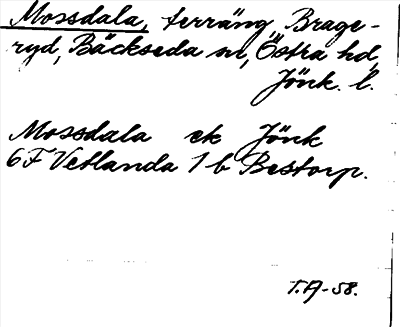 Mossdala, terräng Brage-
ryd, Bäckseda sn, Östra hd,
Jönk. l.
Mossdala ek Jönk
6F Vetlanda 1 b Bestorp.
T.A-58.